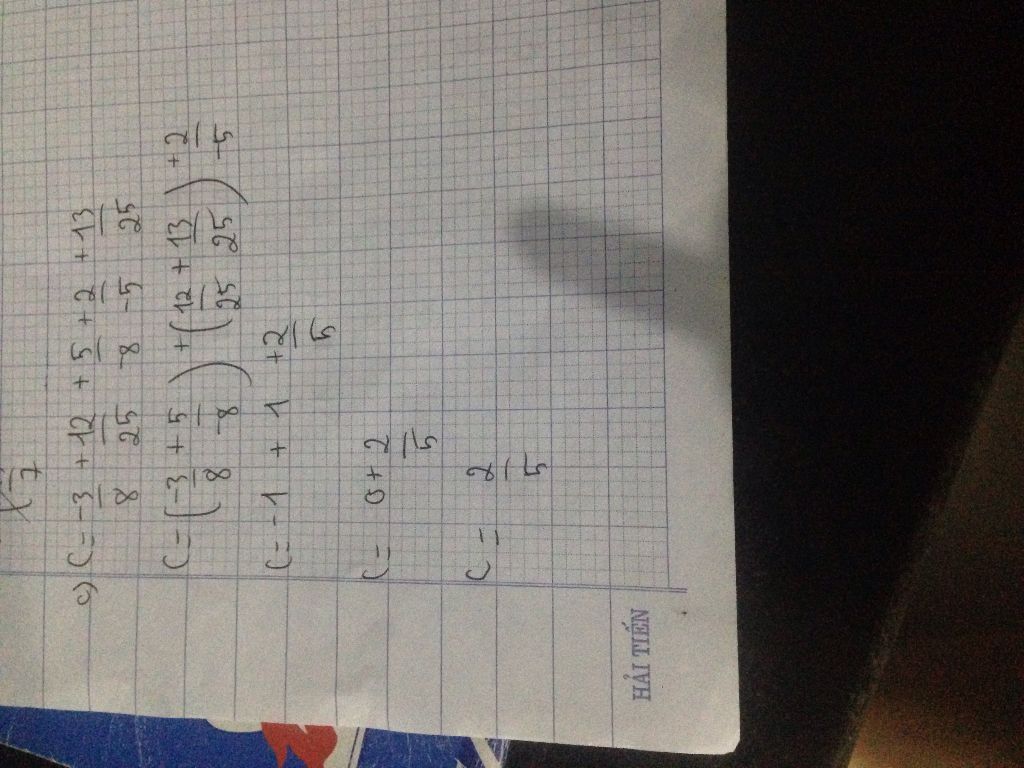 7
c) C = -3/8 + 12/25 + 5/-8 + 2/-5 + 13/25
C = (-3/8 + 5/-8) + (12/25 + 13/25) + 2/-5
C = -1 + 1 + 2/5
C = 0 + 2/5
C = 2/5
HẢI TIẾN